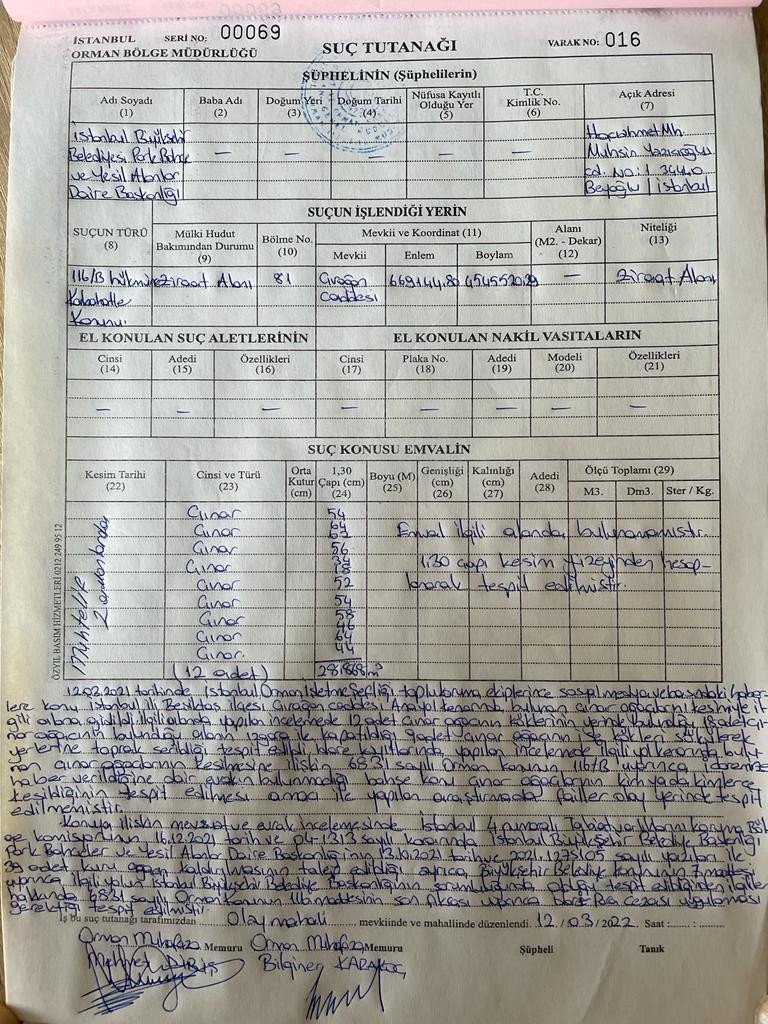 İSTANBUL
ORMAN BÖLGE MÜDÜRLÜĞÜ
SERİ NO: 00069
SUÇ TUTANAĞI
VARAK NO: 016
ŞÜPHELİNİN (Şüphelilerin)
Adı Soyadı (1) Baba Adı (2) Doğum Yeri (3) Doğum Tarihi (4) Nüfusa Kayıtlı Olduğu Yer (5) T.C. Kimlik No. (6) Açık Adresi (7)
İstanbul Büyükşehir
Belediyesi Park Bahçe
ve Yeşil Alanlar
Daire Başkanlığı
— — — — —
Hacıahmet Mh.
Muhsin Yazıcıoğlu
cd. No:1 34440
Beyoğlu / İstanbul
SUÇUN İŞLENDİĞİ YERİN
SUÇUN TÜRÜ (8) Mülki Hudut Bakımından Durumu (9) Bölme No. (10) Mevkii ve Koordinat (11) Alanı (M2. - Dekar) (12) Niteliği (13)
Mevkii Enlem Boylam
116/B hükmüne
Kabahatle
Konu.
Ziraat Alanı 81 Çırağan caddesi 669144.80 4545520.29 — Ziraat Alanı
EL KONULAN SUÇ ALETLERİNİN EL KONULAN NAKİL VASITALARIN
Cinsi (14) Adedi (15) Özellikleri (16) Cinsi (17) Plaka No. (18) Adedi (19) Modeli (20) Özellikleri (21)
— — — — — — — —
SUÇ KONUSU EMVALİN
Kesim Tarihi (22) Cinsi ve Türü (23) Orta Kutur (cm) 1,30 Çapı (cm) (24) Boyu (M) (25) Genişliği (cm) (26) Kalınlığı (cm) (27) Adedi (28) Ölçü Toplamı (29)
M3. Dm3. Ster / Kg.
Muhtelif
zamanlarda
Çınar 54
Çınar 64
62
Çınar 56
Çınar 34
18
Çınar 52
Çınar 54
Çınar 58
46
Çınar 64
Çınar 44
(12 adet) 28.868 m³
Emval ilgili alanda bulunamamıştır.
1,30 çapı kesim yüzeyinden hesap-
lanarak tespit edilmiştir.
ÖZYIL BASIM HİZMETLERİ 0212 249 95 12
12.03.2021 tarihinde İstanbul Orman İşletme Şefliği toplu koruma ekiplerince sosyal medya ve basındaki haber-
lere konu İstanbul ili Beşiktaş ilçesi Çırağan caddesi Anayol kenarında bulunan çınar ağaçlarını kesimiyle il-
gili alana gidildi. İlgili alanda yapılan incelemede 12 adet çınar ağacının köklerinin yerinde bulunduğu 18 adet çı-
nar ağacının bulunduğu alanın ızgara ile kapatıldığı 9 adet çınar ağacının ise kökleri sökülerek
yerlerine toprak serildiği tespit edildi. İdare kayıtlarında yapılan incelemede ilgili yol kenarında bulu-
nan çınar ağaçlarının kesilmesine ilişkin 6831 sayılı Orman kanunun 116/B uyarınca idaremize
haber verildiğine dair evrakın bulunmadığı bahse konu çınar ağaçlarının kim ya da kimlerce
kesildiğinin tespit edilmesi amacı ile yapılan araştırmada failler olay yerinde tespit
edilmemiştir.
Konuya ilişkin mevzuat ve evrak incelemesinde İstanbul 4 numaralı Tabiat varlıklarını koruma Böl-
ge komisyonunun 16.12.2021 tarih ve 04-1313 sayılı kararında İstanbul Büyükşehir Belediye Başkanlığı
Park Bahçeler ve Yeşil Alanlar Daire Başkanlığının 13.10.2021 tarih ve 2021.1275105 sayılı yazıları ile
39 adet kuru ağacın kaldırılmasının talep edildiği ayrıca Büyükşehir Belediye kanununun 7.maddesi
uyarınca ilgili yolun İstanbul Büyükşehir Belediye Başkanlığının sorumluluğunda olduğu tespit edildiğinden ilgililer
hakkında 6831 sayılı Orman Kanunun 116 maddesinin son fıkrası uyarınca İdari Para Cezası uygulanması
gerektiği tespit edilmiştir.
İş bu suç tutanağı tarafımızdan Olay mahali mevkiinde ve mahallinde düzenlendi. 12 / 03 / 2022 Saat : ...... : ......
Orman Muhafaza Memuru Orman Muhafaza Memuru Şüpheli Tanık
Bilginer KARAKOÇ